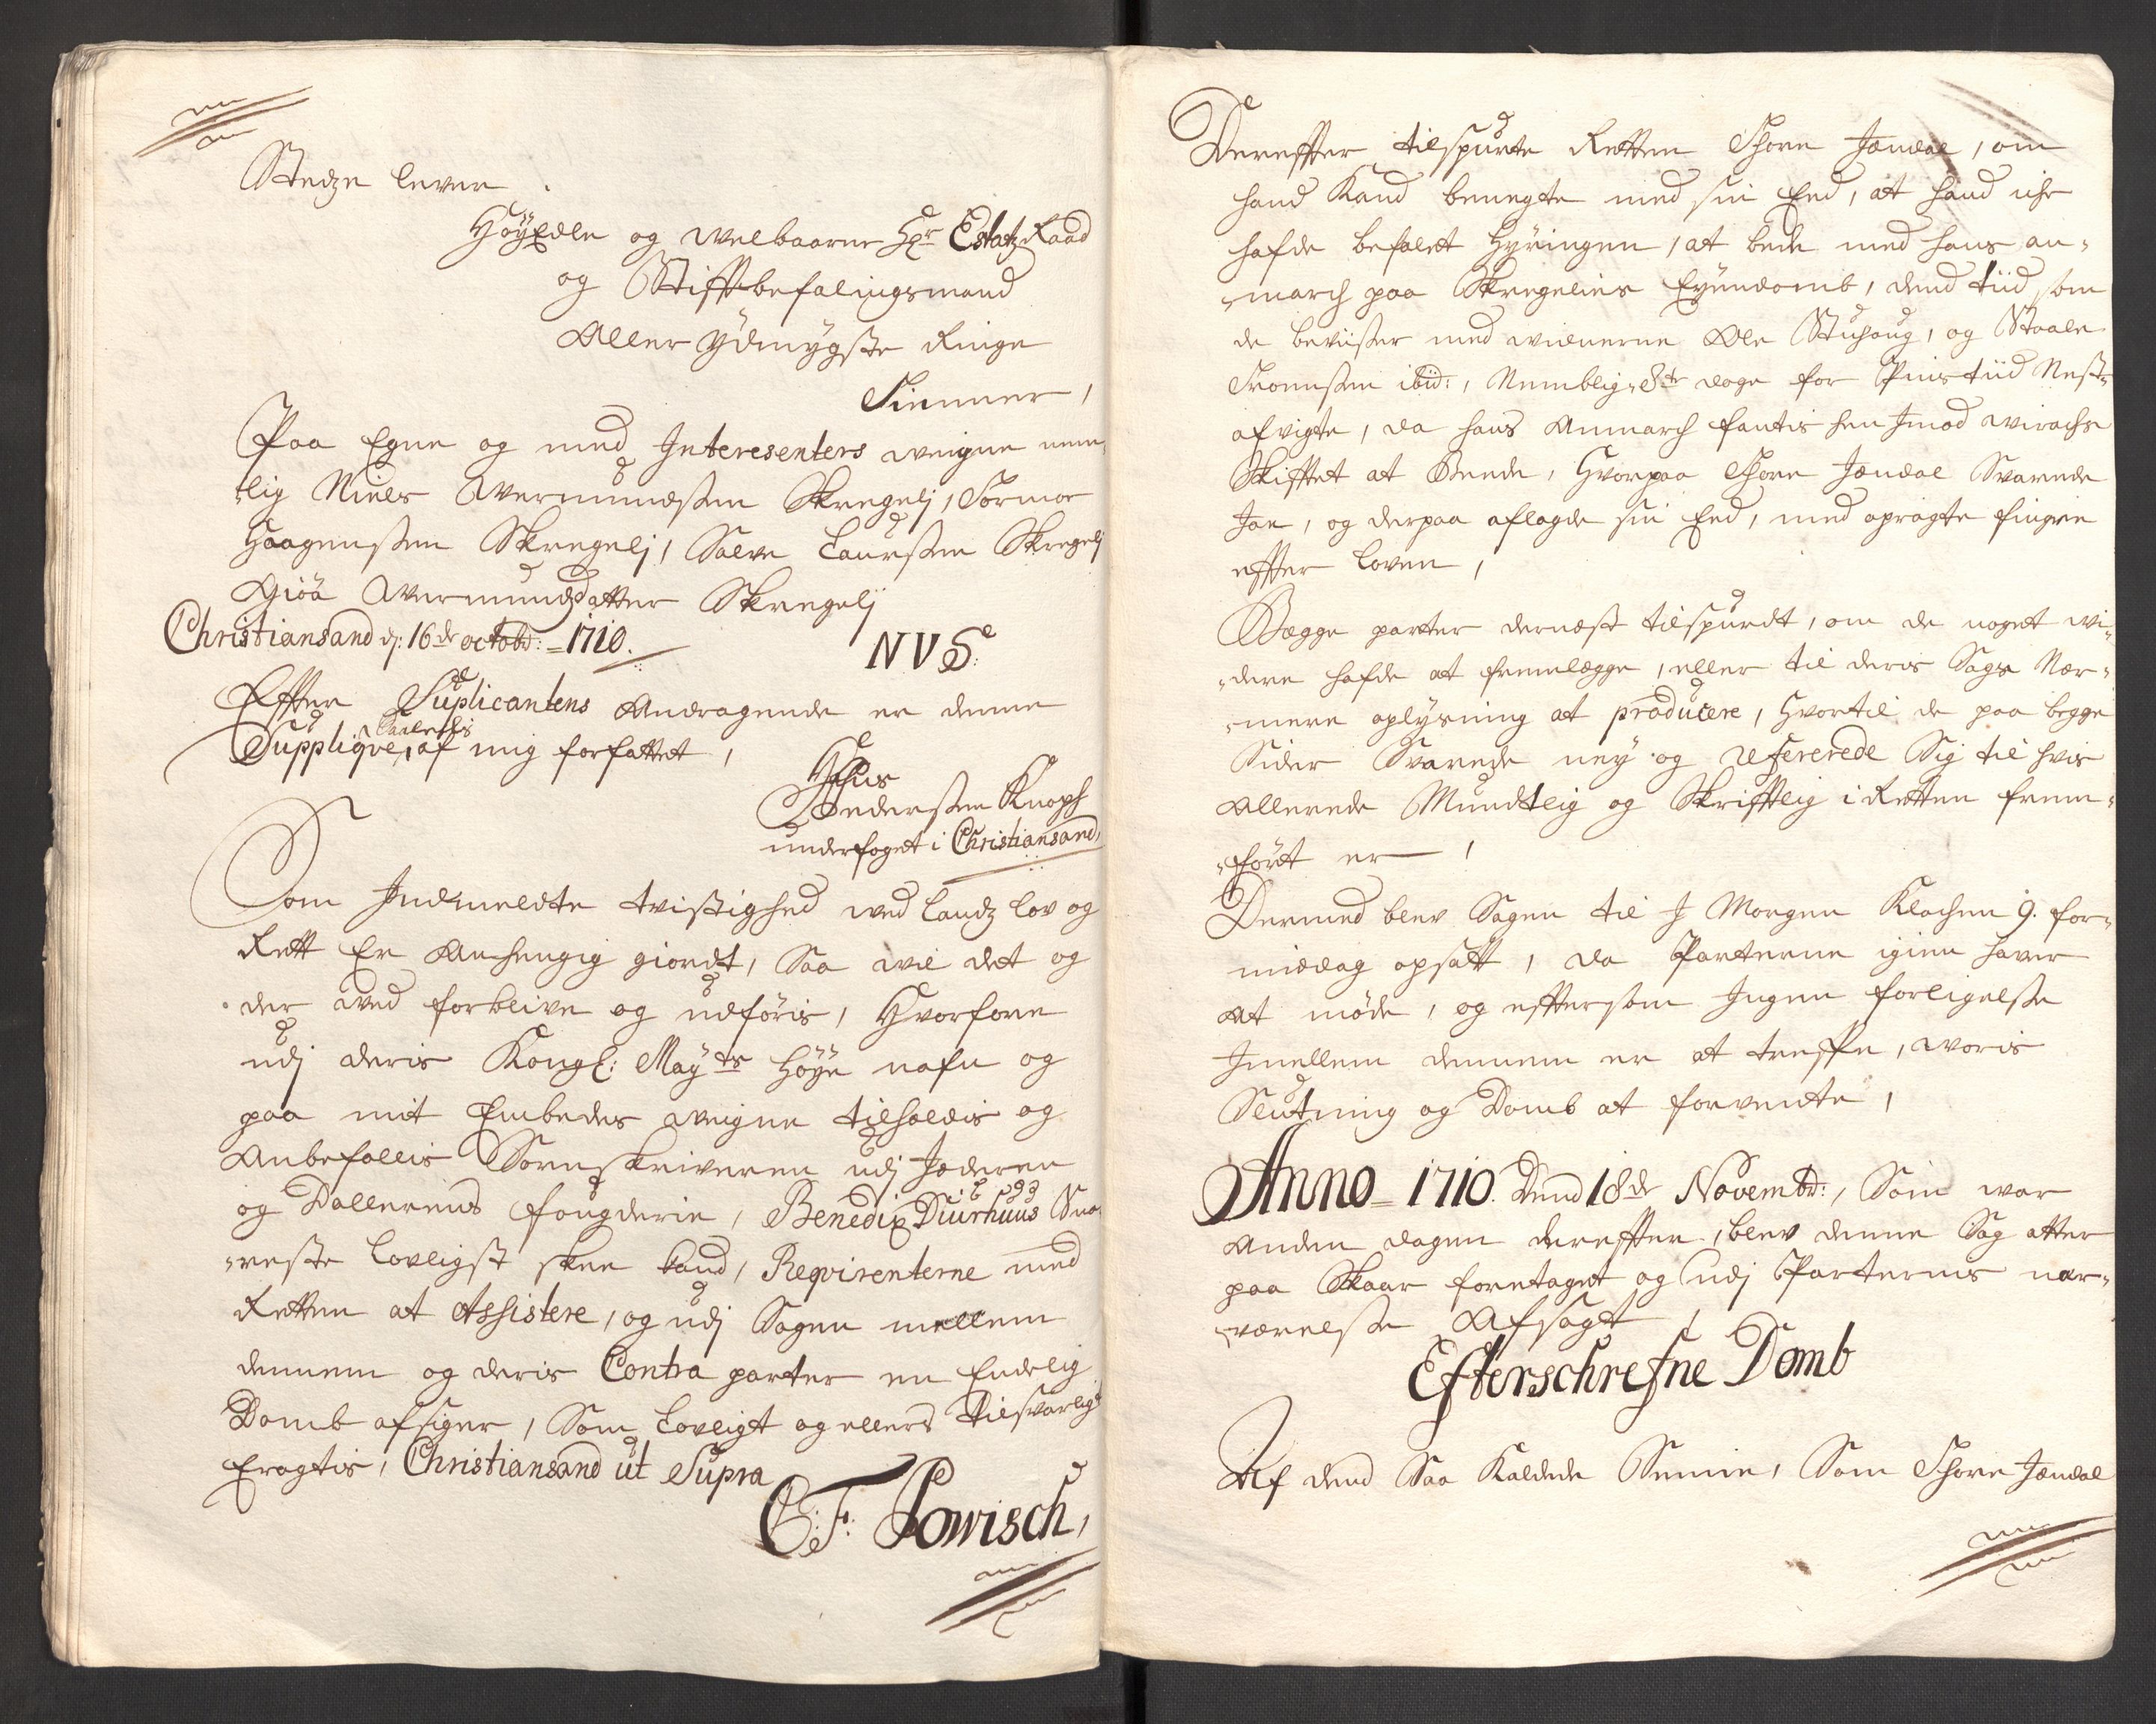 Stedze lever
HöyEdle og welbaarne Hr EstatzRaad
og Stiftbefalingsmand
Aller ydmygste ringe
Tienner,
Paa Egne og med Interesenters weigne nem¬
„lig Niels Avermundssen Skregelj, Tormoe
Haagenssen Skregelj, Salve Laurssen Skregelj
Giöa Avermundsdatter Skregelj
Christiansand dj: 16de octobr: 1710.
NVS:
Efter Suplicantens Andragende er denne
Supplique, saaledis af mig forfattet,
Jens
Pederssen Knoph
underfoget i Christiansand,
Som Indmeldte tvistighed ved Landz lov og
Rett Er Anhengig giordt, saa vil det og
der ved forblive og udföris, Hvorfore
udj deris Kongl: Mayts höye nafn og
paa mit Embedes weigne tilholdis og
Anbefallis Sorenskriveren udj Jæderen
og Dallernes fougderie, Benedix Diurhuus Sna¬
„reste lovligst skee kand, Reqvirenterne med
Retten at Assistere, og udj Sagen mellem
dennem og deris Contra parter en Endelig
Domb afsiger, som lovligt og ellers tilsvarligt
Eragtis, Christiansand ut Supra
C: F: Powisch,
Dereffter tilspurte Retten Thore Jændal, om
hand kand benegte med sin Eed, at hand iche
hafde befalet Hyringen, at bede med hans an¬
„march paa Skregelies Eyendomb, dend tiid som
de beviiser med widnerne Ole Stuhoug, og Staale
Tronnssen ibid:, Nemblig 8te dage for Pins tiid Nest¬
afvigte, da hans Anmarch fantis hen Imod wirachs
Skifftet at Beede, Hvorpaa Thore Jændal Svarede
Jae, og derpaa aflagde sin Eed, med opragte fingre
effter loven,
Begge parter dernæst tilspurdt, om de noget wi¬
„dere hafde at fremlægge, eller til deris Sags Nær¬
„mere oplysning at producere, Hvortil de paa begge
Sider Svarede ney og refererede Sig til hvis
Allerede Mundtlig og Skrifftlig i Retten frem¬
„fört er,
Dermed blev Sagen til I Morgen Klochen 9. for¬
middag opsatt, da Parterne igien haver
at möde, og efftersom Ingen forligelse
Imellem dennem er at treffe, woris
Slutning og Domb at forvente,
Anno 1710. Dend 18de Novembr:, Som war
Anden dagen dereffter, blev denne Sag atter
paa Skaar foretaget og udj Parternes nær¬
„werelse Afsagt
Efterschrefne Domb
Af dend saa kaldede Semie, Som Thore Jændal